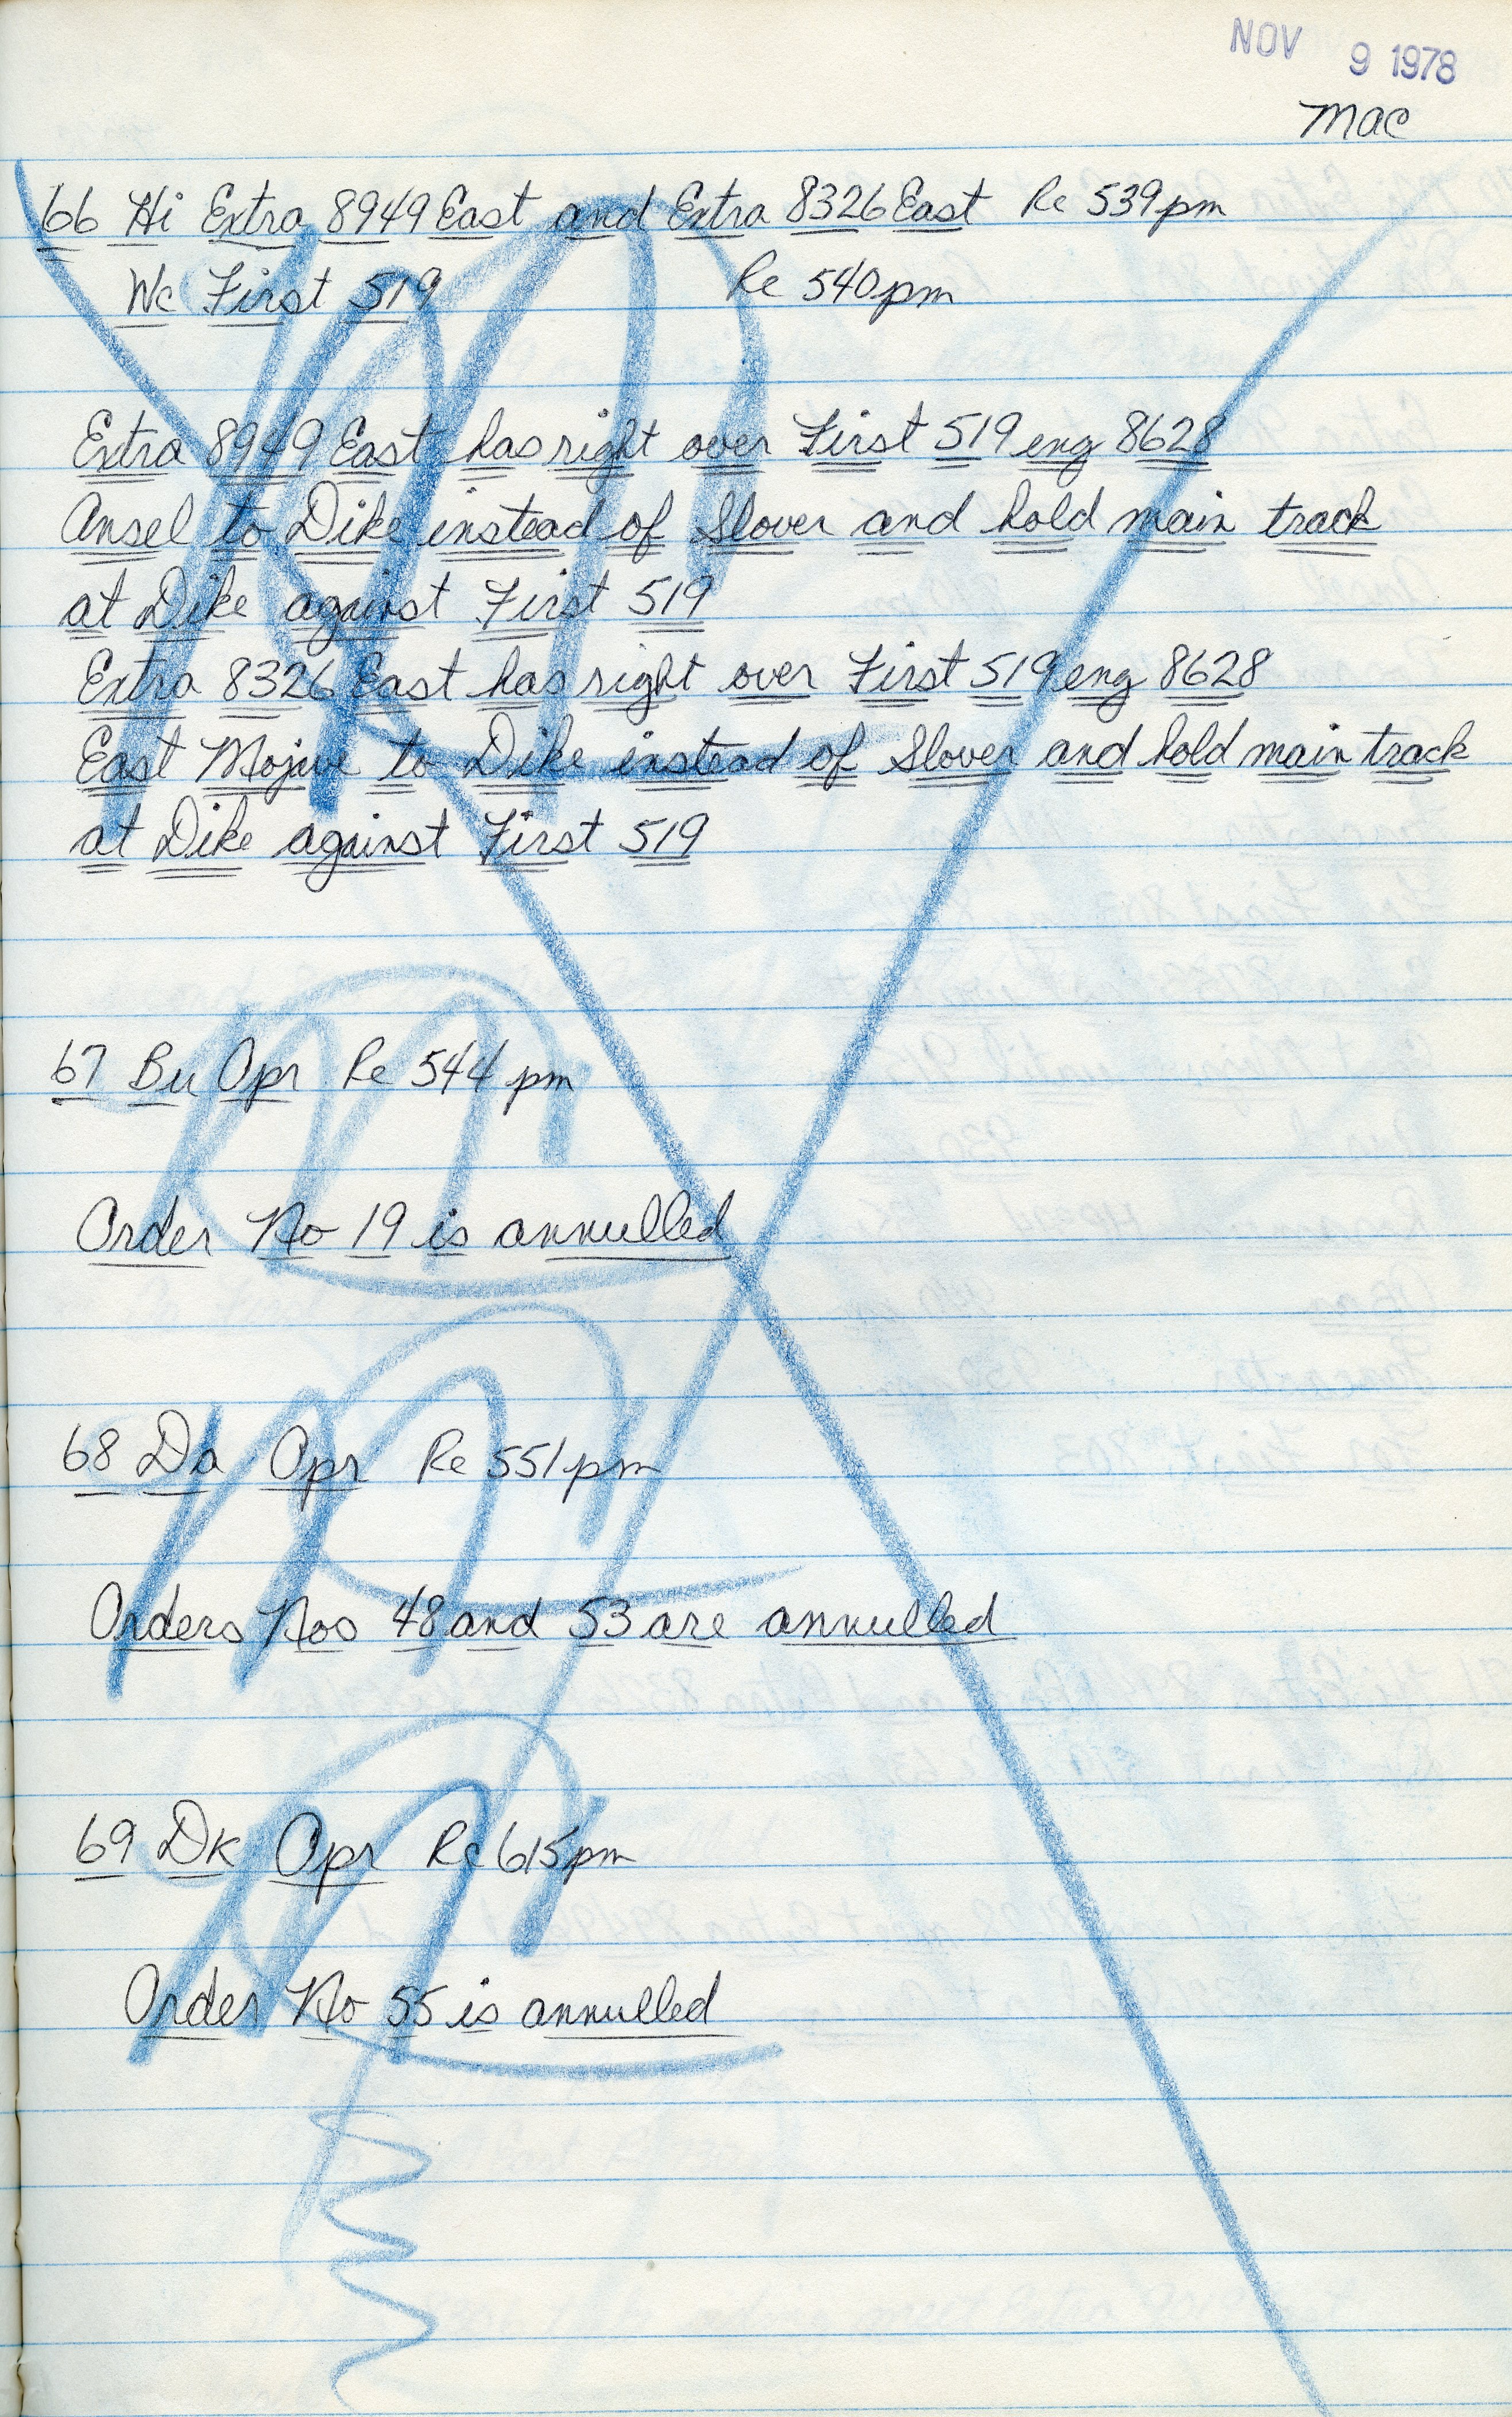 NOV 9 1978
Mac
66 Hi Extra 8949 East and Extra 8326 East Re 539pm
Wc First 519 Re 540pm
Extra 8949 East has right over First 519 eng 8628
Ansel to Dike instead of Slover and hold main track
at Dike against First 519
Extra 8326 East has right over First 519 eng 8628
East Mojave to Dike instead of Slover and hold main track
at Dike against First 519
67 Bu Opr Re 544 pm
Order No 19 is annulled
68 Da Opr Re 551pm
Orders Nos 48 and 53 are annulled
69 Dk Opr Re 615pm
Order No 55 is annulled